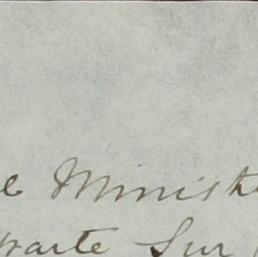 e Ministe
parte Sur